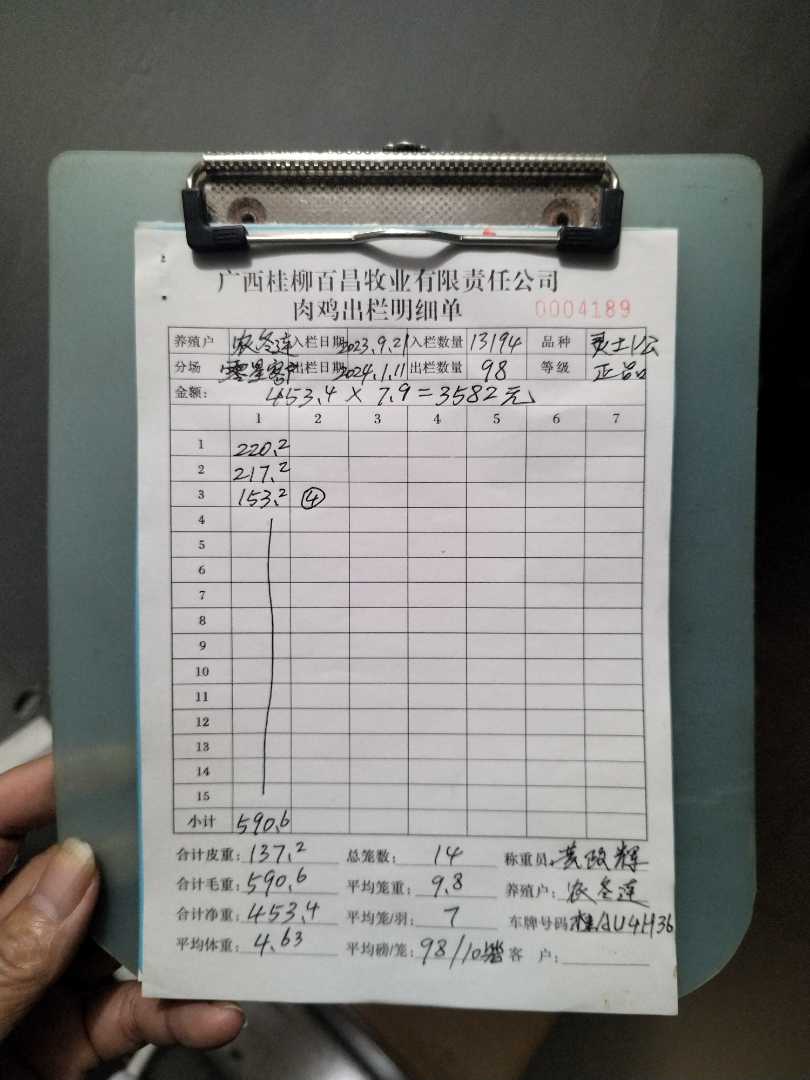 广西桂柳百昌牧业有限责任公司
肉鸡出栏明细单 0004189
养殖户 农冬连 入栏日期 2023.9.21 入栏数量 13194 品种
分场 零星客户 出栏日期 2024.1.11 出栏数量 98 等级 正品
金额: 453.4 × 7.9 = 3582元
1 2 3 4 5 6 7
1 220.2
2 217.2
3 153.2 ④
4
5
6
7
8
9
10
11
12
13
14
15
小计 590.6
合计皮重: 137.2 总笼数: 14 称重员: 黄政辉
合计毛重: 590.6 平均笼重: 9.8 养殖户: 农冬连
合计净重: 453.4 平均笼/羽: 7 车牌号码: 桂AU4H36
平均体重: 4.63 平均磅/笼: 98/10 客 户: